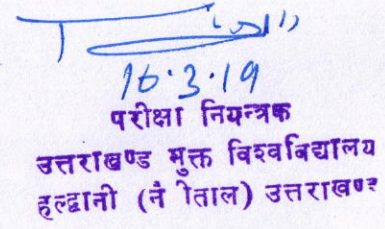 16.3.19
परीक्षा नियन्त्रक
उत्तराखण्ड मुक्त विश्वविद्यालय
हल्द्वानी (नै ीताल) उत्तराखण्ड